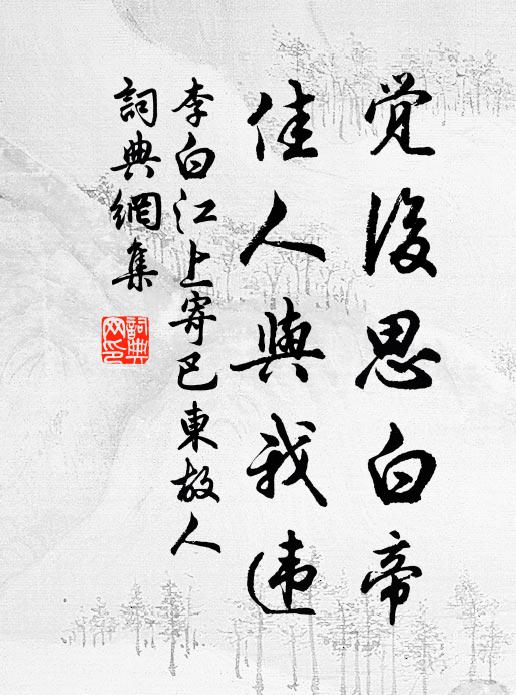 覚後思白帝
佳人與我违
李白江上寄巴東故人
詞典網集
詞典网印